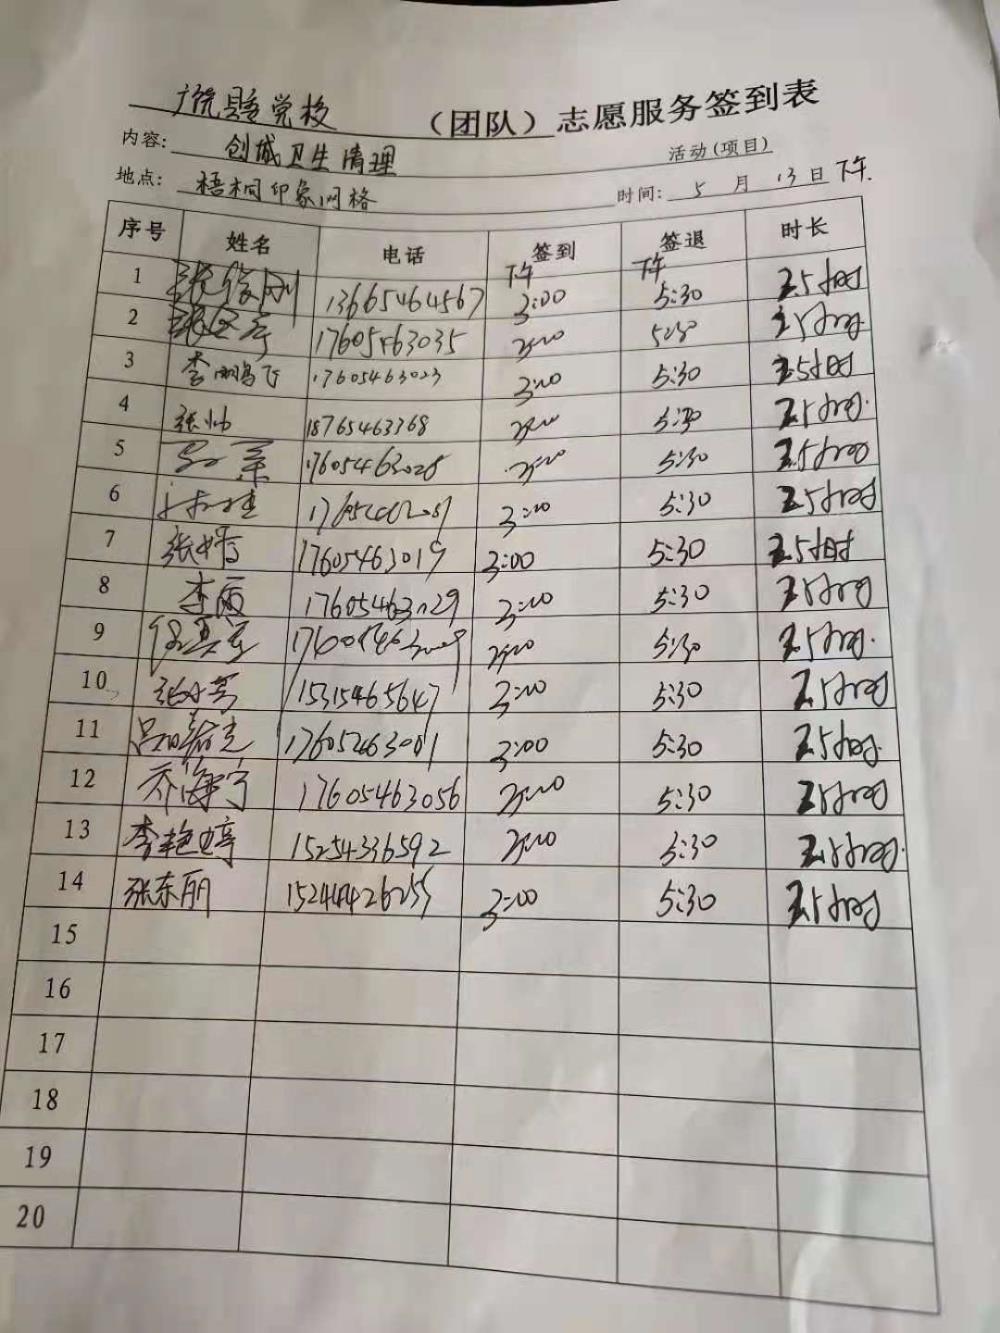 广饶县委党校（团队）志愿服务签到表
内容: 创城卫生清理 活动(项目)
地点: 梧桐印象网格 时间: 5 月 13 日 下午.
序号 姓名 电话 签到 签退 时长
1 13665464567 下午 3:00 下午 5:30 2.5小时
2 17605463035 3:00 5:30 2.5小时
3 李鹏飞 17605463023 3:00 5:30 2.5小时
4 张帅 18765463368 3:00 5:30 2.5小时.
5 17605463028 3:00 5:30 2.5小时
6 3:00 5:30 2.5小时
7 17605463019 3:00 5:30 2.5小时
8 李丽 17605463029 3:00 5:30 2.5小时
9 17605463009 3:00 5:30 2.5小时.
10 15315465647 3:00 5:30 2.5小时
11 17605463001 3:00 5:30 2.5小时.
12 乔海宁 17605463056 3:00 5:30 2.5小时
13 李艳婷 15254336592 3:00 5:30 2.5小时.
14 张东丽 15244426255 3:00 5:30 2.5小时
15
16
17
18
19
20